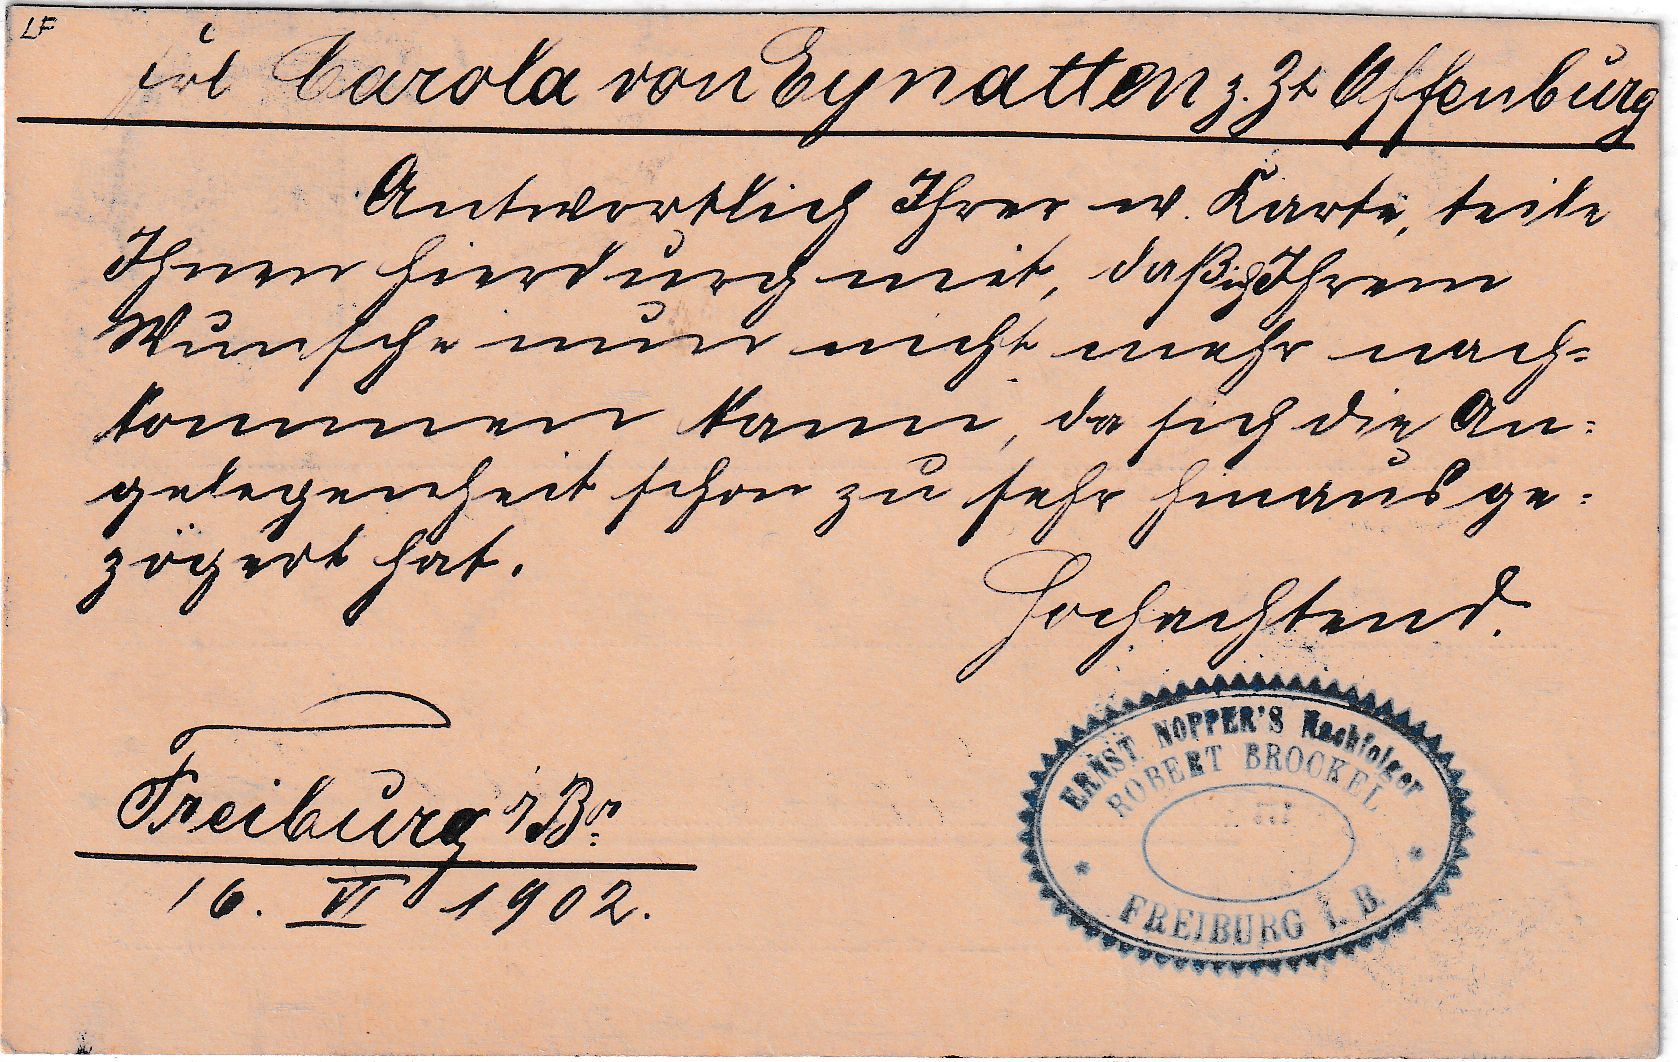 LF
Frl Carola von Eynatten z. Zt Offenburg
Antwortlich Ihrer w. Karte, teile
Ihnen hierdurch mit, daß ich Ihrem
Wunsche nun nicht mehr nach=
kommen kann, da sich die An=
gelegenheit schon zu sehr hinausge=
zögert hat.
Hochachtend.
ERNST NOPPER'S Nachfolger
ROBERT BROCKEL
FREIBURG I. B.
Freiburg i/Br.
16. VI 1902.